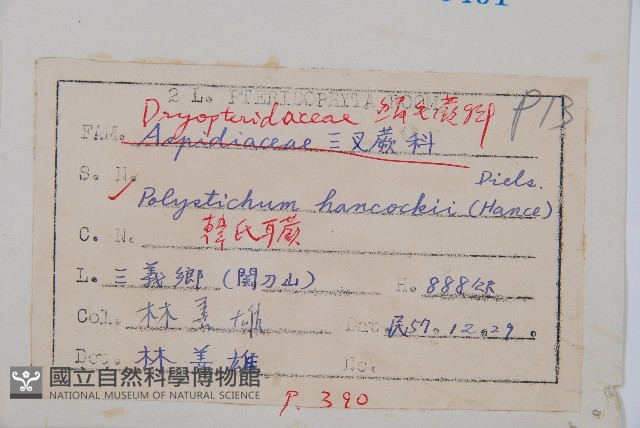 2 L. PTERIDOPHYTA
Dryopteridaceae
FAM. Aspidiaceae 三叉蕨科
P13
S. N. Diels.
Polystichum hancockii (Hance)
C. N. 韓氏耳蕨
L. 三義鄉 (関刀山) H. 888公尺
Col. 林美雄 Dat. 民57.12.29.
Det. 林美雄 No.
國立自然科學博物館
NATIONAL MUSEUM OF NATURAL SCIENCE
P. 390